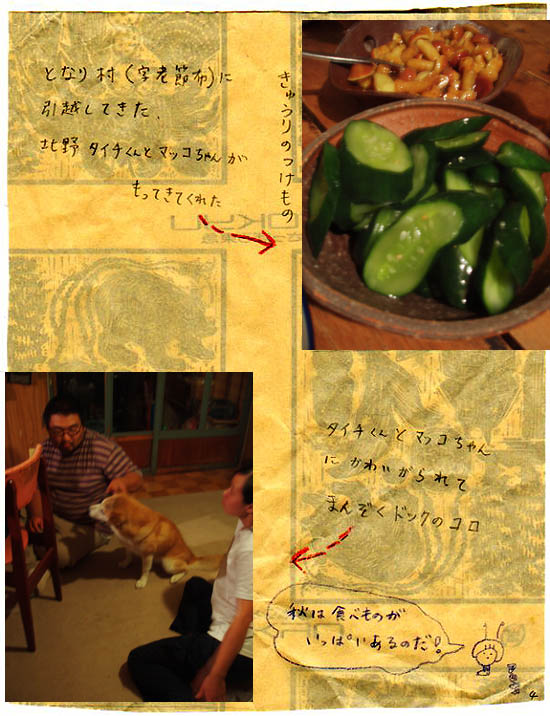 となり村(字老節布)に
引越してきた.
北野 タイチくんとマッコちゃんが
もってきてくれた
きゅうりのつけもの
タイチくんとマッコちゃん
に かわいがられて
まんぞくドックのコロ
秋は食べものが
いっぱいあるのだ!
4